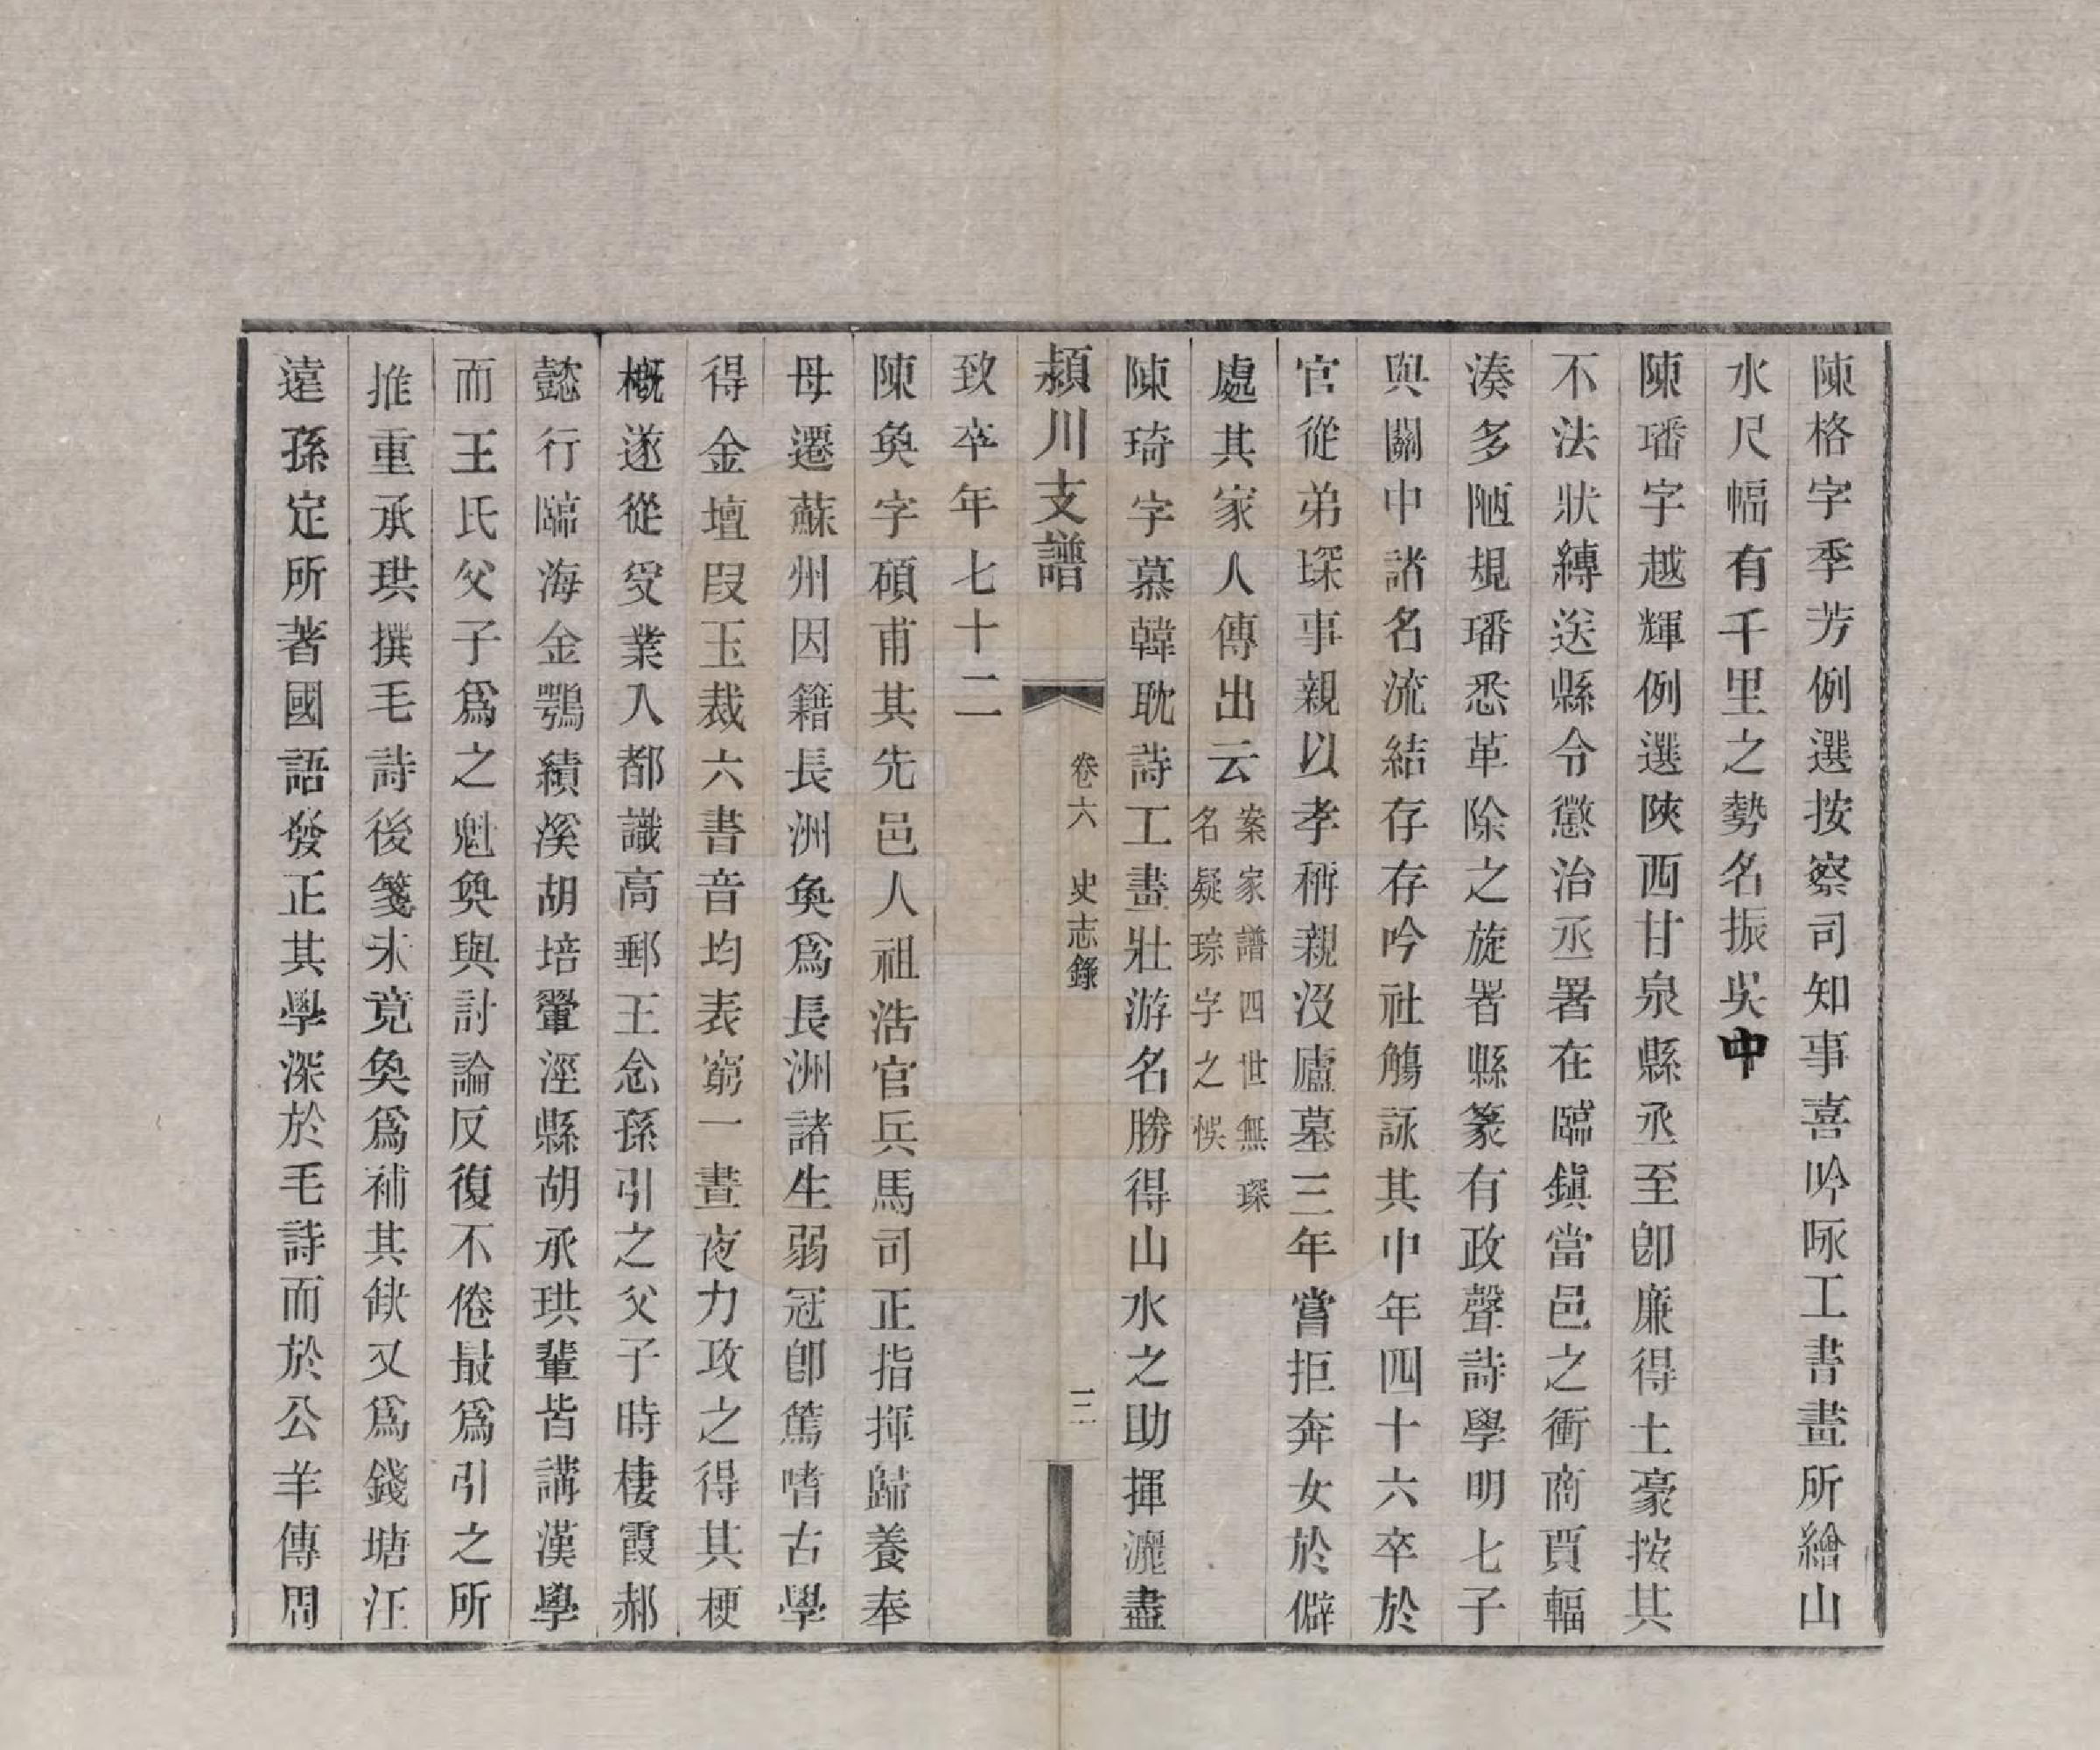 陳格字季芳例選按察司知事喜吟咏工書畫所繪山
水尺幅有千里之勢名振吳中
陳璠字越輝例選陝西甘泉縣丞至卽廉得土豪按其
不法狀縛送縣令懲治丞署在臨鎭當邑之衝商賈輻
湊多陋規璠悉革除之旋署縣篆有政聲詩學明七子
與關中諸名流結存存吟社觴詠其中年四十六卒於
官從弟琛事親以孝稱親沒廬墓三年嘗拒奔女於僻
處其家人傳出云
案家譜四世無琛
名疑琮字之悞
陳琦字慕韓耽詩工畫壯游名勝得山水之助揮灑盡
潁川支譜 卷六 史志錄 二
致卒年七十二
陳奐字碩甫其先邑人祖浩官兵馬司正指揮歸養奉
母遷蘇州因籍長洲奐爲長洲諸生弱冠卽篤嗜古學
得金壇段玉裁六書音均表窮一晝夜力攻之得其梗
槪遂從受業入都識高郵王念孫引之父子時棲霞郝
懿行臨海金鶚績溪胡培翬涇縣胡承珙輩皆講漢學
而王氏父子爲之魁奐與討論反復不倦最爲引之所
推重承珙撰毛詩後箋未竟奐爲補其缺又爲錢塘汪
遠孫定所著國語發正其學深於毛詩而於公羊傳周